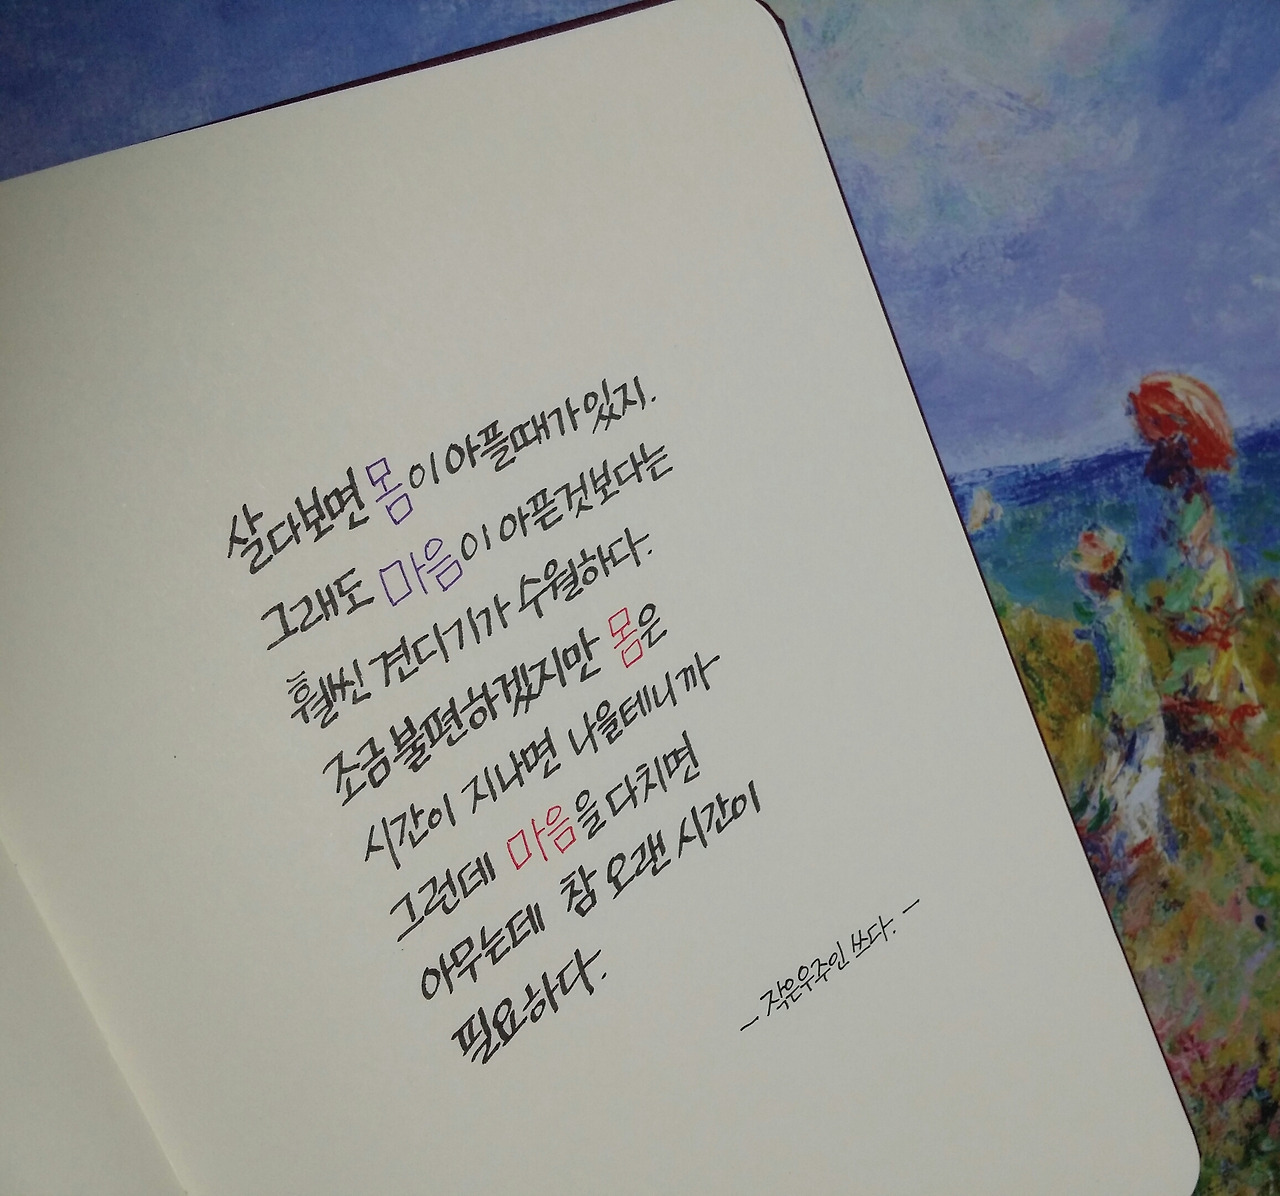 살다보면 몸이 아플때가 있지.
그래도 마음이 아픈것보다는
훨씬 견디기가 수월하다.
조금 불편하겠지만 몸은
시간이 지나면 나을테니까
그런데 마음을 다치면
아무는데 참 오랜 시간이
필요하다.
- 작은우주인 쓰다. -